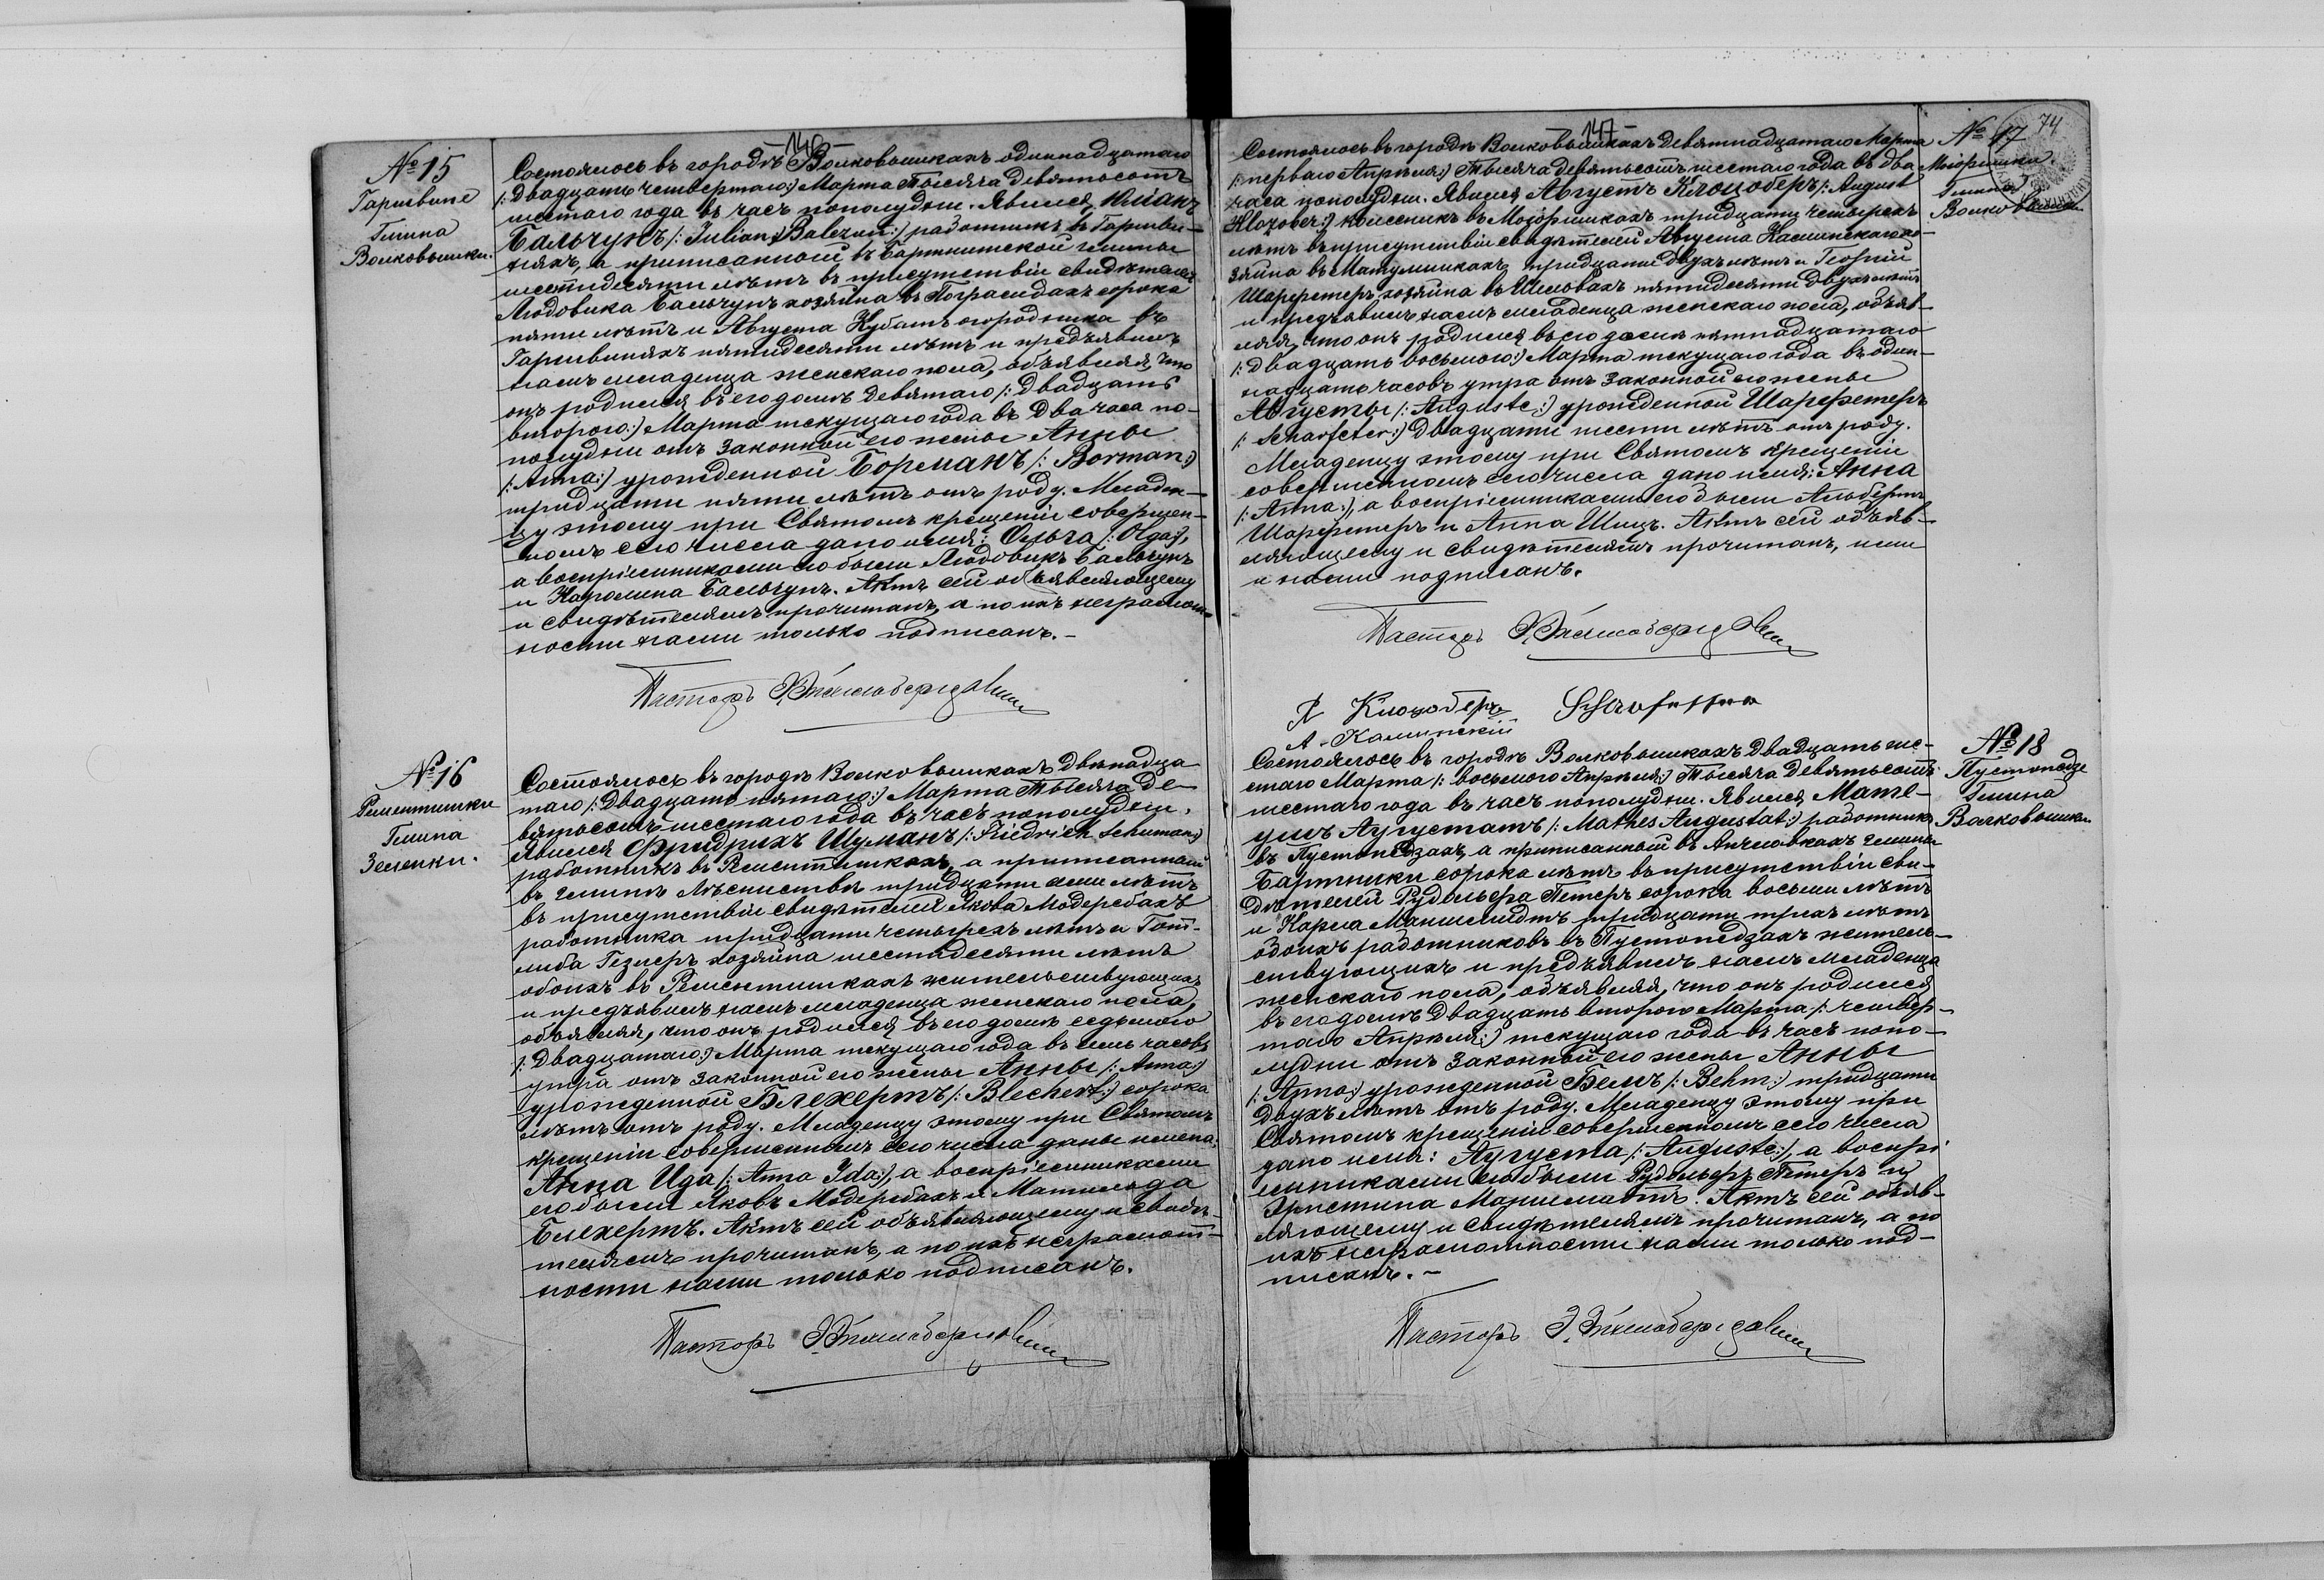 146
№ 15
Гаршвине
Гмина
Волковышки.
Состоялось въ городѣ Волковышкахъ одиннадцатаго
/: двадцать четвертаго:/ Марта Тысяча девятьсотъ
шестаго года въ часъ пополудни. Явился, Юліанъ
Бальчунъ /: Julian Balczun:/ работникъ въ Гаршви-
няхъ, а приписанной въ Бартнитской гмины
шестидесяти лѣтъ въ присутствіи свидѣтелей
Людовика Бальчунъ хозяина въ Пограмдахъ сорока
пяти лѣтъ и Августа Кубатъ огородника въ
Гаршвиняхъ пятидесяти лѣтъ и предъявилъ
намъ младенца женскаго пола, объявляя, что
онъ родился въ его домѣ девятаго /: двадцать
втораго:/ Марта текущаго года въ два часа по-
полудни отъ законной его жены Анны
/: Anna:/ урожденной Борманъ /: Borman:/
тридцати пяти лѣтъ отъ роду. Младен-
цу этому при Святомъ крещеніи совершен-
номъ сего числа дано имя: Ольга /: Olga:/,
а воспріемниками его были Людовикъ Бальчунъ
и Каролина Бальчунъ. Актъ сей объявляющему
и свидѣтелямъ прочитанъ, а по ихъ неграмот-
ности нами только подписанъ.-
Пасторъ
№ 16
Рементишки
Гмина
Зеленки.
Состоялось въ городѣ Волковышкахъ двѣнадца
таго /: двадцать пятаго:/ Марта Тысяча де-
вятьсотъ шестаго года въ часъ пополудни.
Явился Фридрихъ Шуманъ /: Friedrich Schuman:/
работникъ въ Рементишкахъ, а приписанный
въ гминѣ Лѣсниство тридцати семи лѣтъ
въ присутствіи свидѣтелей Якова Модербахъ
работника тридцати четырехъ лѣтъ и Гот-
либа Гезнеръ хозяина шестидесяти лѣтъ
обоихъ въ Рементишкахъ жительствующихъ
и предъявилъ намъ младенца женскаго пола,
объявляя, что онъ родился въ его домѣ седьмого
/: двадцатаго:/ Марта текущаго года въ семь часовъ
утра отъ законной его жены Анны /: Anna:/
урожденной Блехертъ /: Blechert:/ сорока
лѣтъ отъ роду. Младенцу этому при Святомъ
крещеніи совершенномъ сего числа даны имена:
Анна Ида /: Anna Ida:/, а воспріемниками
его были Яковъ Модербахъ и Матильда
Блехертъ. Актъ сей объявляющему и свидѣ-
телямъ прочитанъ, а по ихъ неграмот-
ности нами только подписанъ.
Пасторъ
147
74
№ 17
Мозоришки
Гмина
Волковышки
Состоялось въ городѣ Волковышкахъ девятнадцатаго Марта
/: перваго Апрѣля:/ Тысяча девятьсотъ шестаго года въ два
часа пополудни. Явился Августъ Клоцоберъ /: August
Klozober:/ колесникъ въ Мозоришкахъ тридцати четырехъ
лѣтъ въ присутствіи свидѣтелей Августа Каминскаго хо-
зяина въ Матулишкахъ тридцати двухъ лѣтъ и Георгій
Шарфетеръ хозяина въ Шиловахъ пятидесяти двухъ лѣтъ
и предъявилъ намъ младенца женскаго пола, объяв-
ляя, что онъ родился въ его домѣ пятнадцатаго
/: двадцать восьмого:/ Марта текущаго года въ один-
надцать часовъ утра отъ законной его жены
Августы /: Auguste:/ урожденной Шарфетеръ
/: Scharfeter:/ двадцати шести лѣтъ отъ роду.
Младенцу этому при Святомъ крещеніи
совершенномъ сего числа дано имя: Анна
/: Anna:/, а воспріемниками его были Альбертъ
Шарфетеръ и Анна Шицъ. Актъ сей объяв-
ляющему и свидѣтелямъ прочитанъ, ими
и нами подписанъ.
Пасторъ
А Клоцоберъ
А. Каминскій
№ 18
Пустопедзе
Гмина
Волковышки
Состоялось въ городѣ Волковышкахъ двадцать ше-
стаго Марта /: восьмого Апрѣля:/ Тысяча девятьсотъ
шестаго года въ часъ пополудни. Явился, Мате-
ушъ Аугустатъ /: Mathes Augustat:/ работникъ
въ Пустопедзахъ, а приписанный въ Анчловкахъ гмины
Бартники сорока лѣтъ въ присутствіи сви-
дѣтелей Рудольфа Петеръ сорока восьми лѣтъ
и Карла Маншмидтъ тридцати трехъ лѣтъ
обоихъ работниковъ въ Пустопедзахъ житель-
ствующихъ и предъявилъ намъ младенца
женскаго пола, объявляя, что онъ родился
въ его домѣ двадцать второго Марта /: четвер-
таго Апрѣля:/ текущаго года въ часъ попо-
лудни отъ законной его жены Анны
/: Anna:/ урожденной Бемъ /: Behm:/ тридцати
двухъ лѣтъ отъ роду. Младенцу этому при
Святомъ крещеніи совершенномъ сего числа
дано имя: Аугуста /: Auguste:/, а воспрі
емниками его были Рудольфъ Петеръ и
Христина Маншмидтъ. Актъ сей объяв-
ляющему и свидѣтелямъ прочитанъ, а по
ихъ неграмотности нами только под-
писанъ.-
Пасторъ